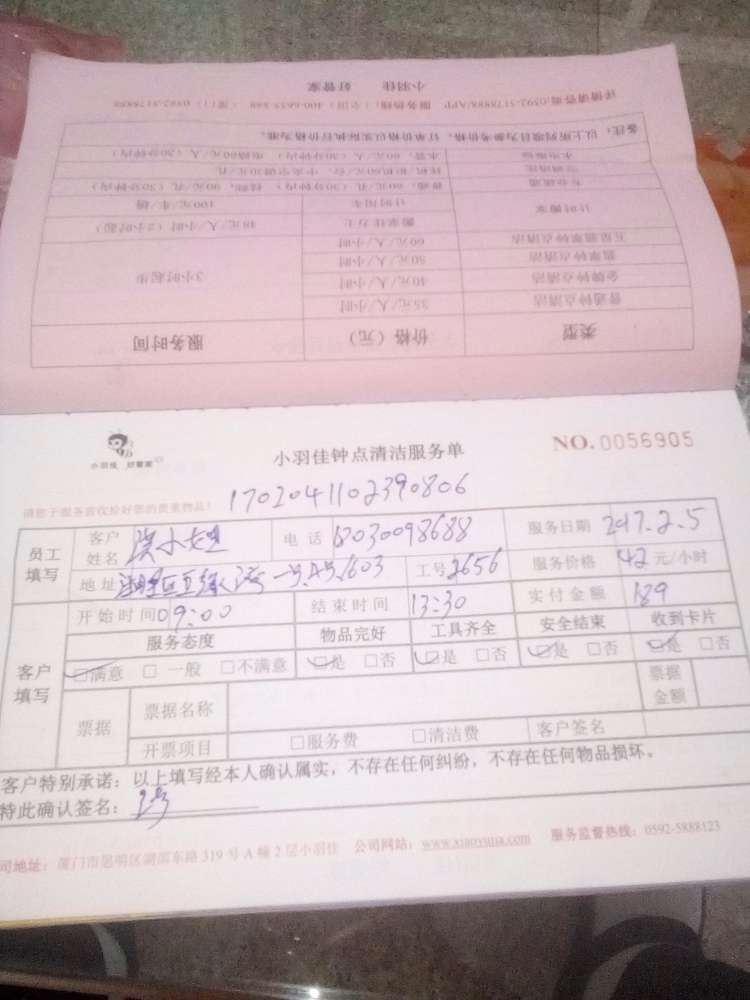 详情请咨询0592-5178888/APP 服务热线：（全国）400-6655-888 （厦门）0592-5178888
小羽佳 好管家
备注：以上所列项目为参考价格，订单价格以实际执行价格为准。
计时搬家
搬家住力士
48元/人/小时（2小时起）
计时用车
100元/车/趟
五星翡翠钟点清洁
60元/人/小时
翡翠钟点清洁
50元/人/小时
金牌钟点清洁
40元/人/小时
普通钟点清洁
35元/人/小时
3小时起步
类型
价格（元）
服务时间
小羽佳 好管家
小羽佳钟点清洁服务单
NO.0056905
请您于服务前收检好您的贵重物品！
1702041102390806
员工填写
客户姓名 洪小姐
电话
服务日期 2017.2.5
地址
工号 2656
服务价格 42 元/小时
客户填写
开始时间 09:00
结束时间 13:30
实付金额 189
服务态度
物品完好
工具齐全
安全结束
收到卡片
☑满意 □一般 □不满意
☑是 □否
☑是 □否
☑是 □否
☑是 □否
票据
票据名称
票据金额
开票项目
□服务费 □清洁费
客户签名
客户特别承诺：以上填写经本人确认属实，不存在任何纠纷，不存在任何物品损坏。
特此确认签名：
司地址：厦门市思明区湖滨东路319号A幢2层小羽佳 公司网站：www.xiaoyujia.com 服务监督热线：0592-5888123